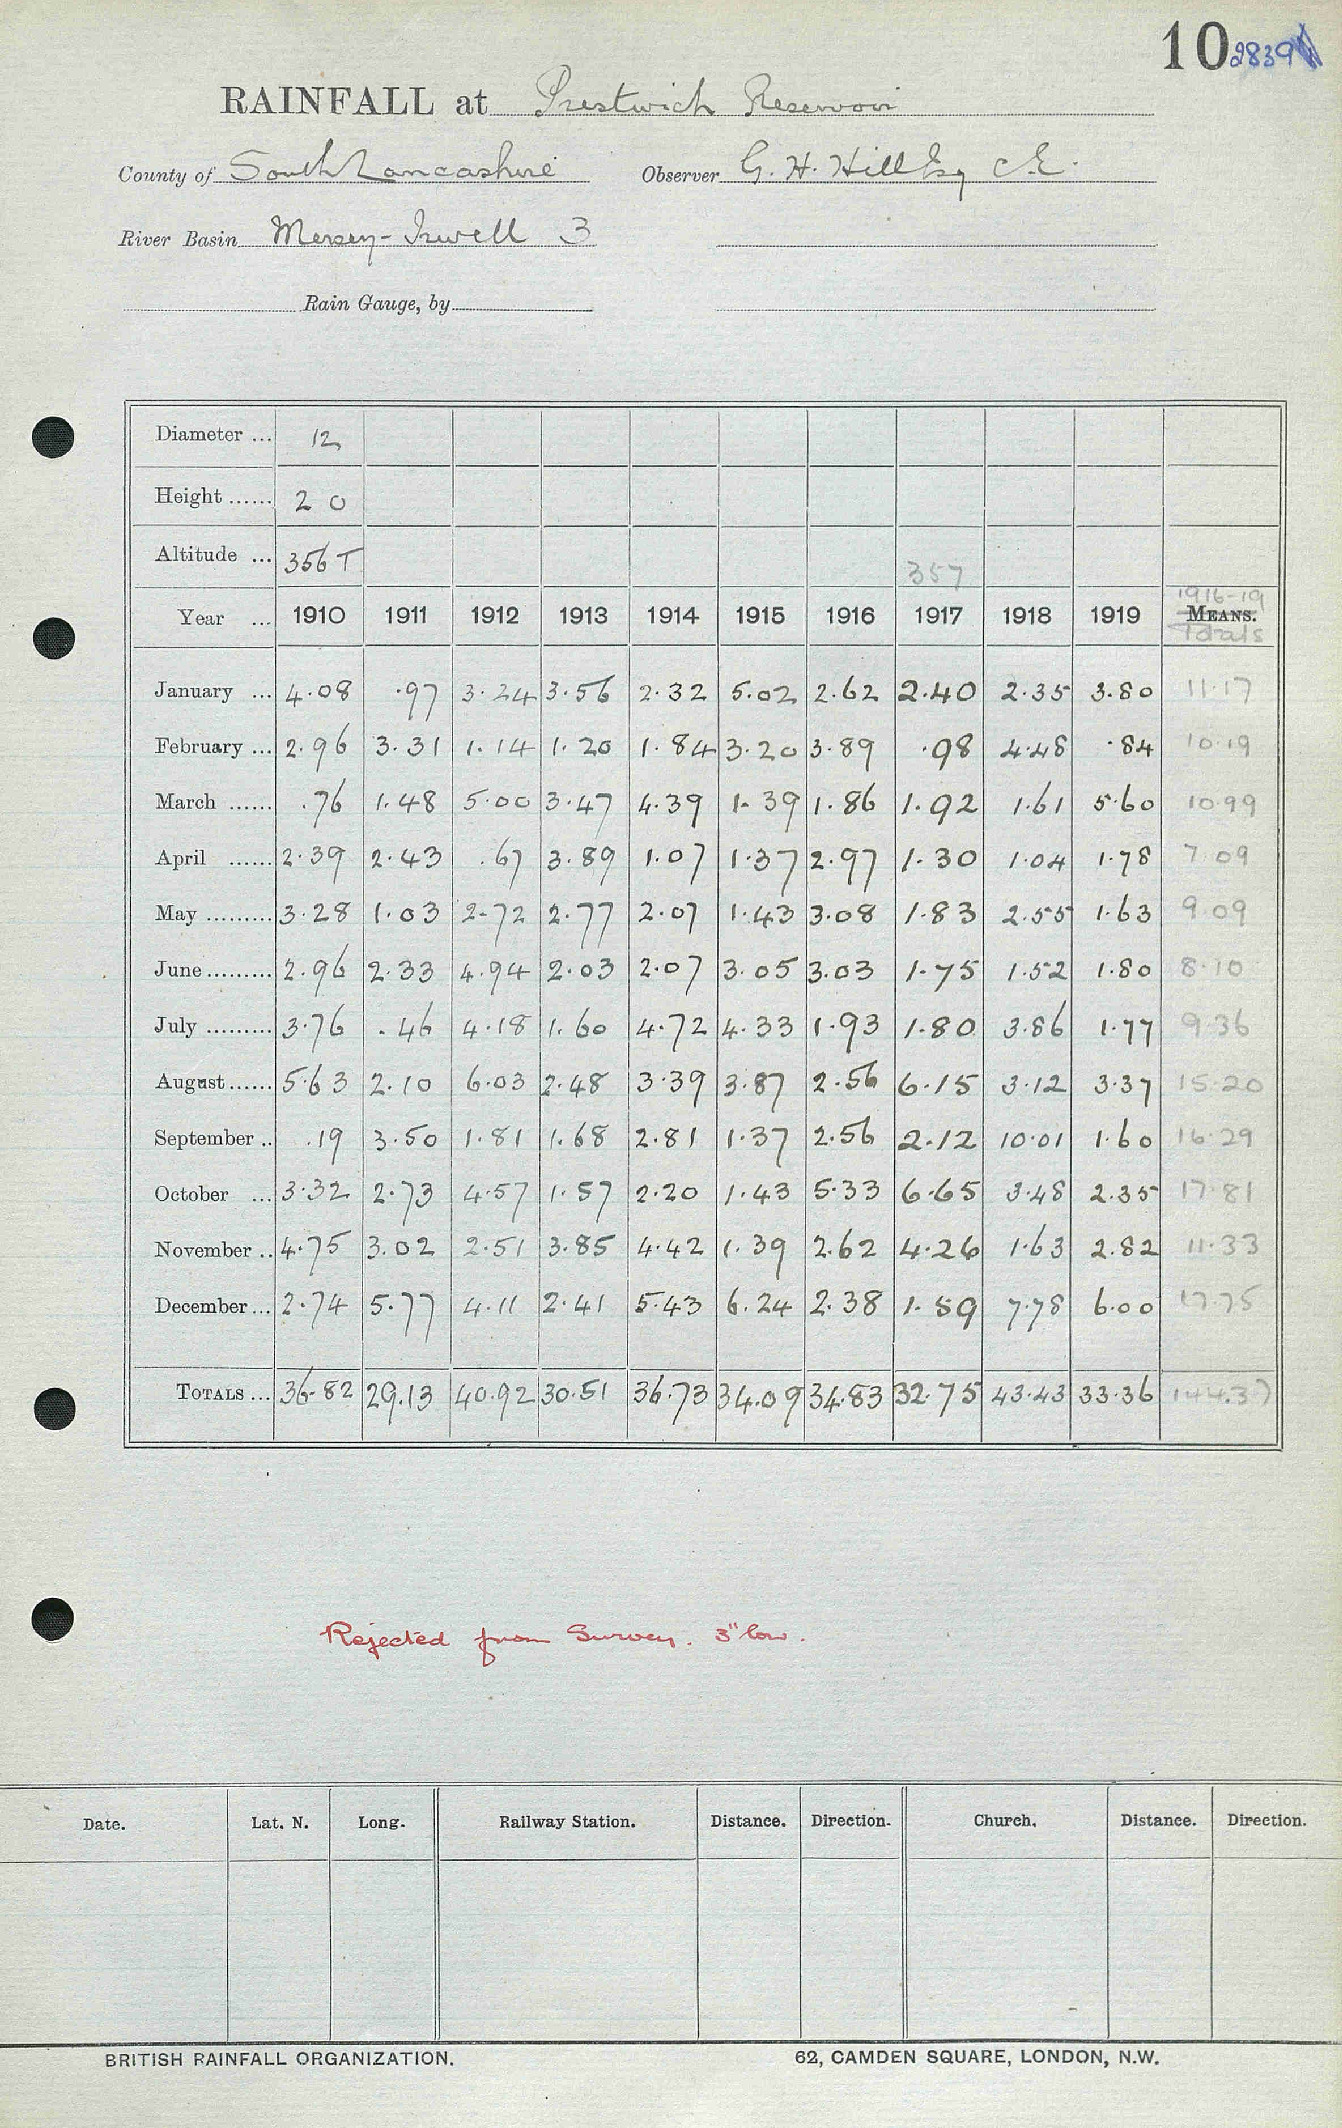 10 2839
RAINFALL at Prestwich Reservoir
County of South Lancashire Observer G. H. Hill Esq C.E.
River Basin Mersey-Irwell 3
Rain Gauge, by
Diameter ... 12
Height ...... 2 0
Altitude ... 356 T 357
Year ... 1910 1911 1912 1913 1914 1915 1916 1917 1918 1919 1916-19 MEANS. Totals
January ... 4.08 .97 3.24 3.56 2.32 5.02 2.62 2.40 2.35 3.80 11.17
February ... 2.96 3.31 1.14 1.20 1.84 3.20 3.89 .98 4.48 .84 10.19
March ...... .76 1.48 5.00 3.47 4.39 1.39 1.86 1.92 1.61 5.60 10.99
April ...... 2.39 2.43 .67 3.89 1.07 1.37 2.97 1.30 1.04 1.78 7.09
May ......... 3.28 1.03 2.72 2.77 2.07 1.43 3.08 1.83 2.55 1.63 9.09
June ......... 2.96 2.33 4.94 2.03 2.07 3.05 3.03 1.75 1.52 1.80 8.10
July ......... 3.76 .46 4.18 1.60 4.72 4.33 1.93 1.80 3.86 1.77 9.36
August ...... 5.63 2.10 6.03 2.48 3.39 3.87 2.56 6.15 3.12 3.37 15.20
September .. .19 3.50 1.81 1.68 2.81 1.37 2.56 2.12 10.01 1.60 16.29
October ... 3.32 2.73 4.57 1.57 2.20 1.43 5.33 6.65 3.48 2.35 17.81
November .. 4.75 3.02 2.51 3.85 4.42 1.39 2.62 4.26 1.63 2.82 11.33
December ... 2.74 5.77 4.11 2.41 5.43 6.24 2.38 1.59 7.78 6.00 17.75
TOTALS ... 36.82 29.13 40.92 30.51 36.73 34.09 34.83 32.75 43.43 33.36 144.37
Rejected from Survey. 3" low.
Date. Lat. N. Long. Railway Station. Distance. Direction. Church. Distance. Direction.
BRITISH RAINFALL ORGANIZATION. 62, CAMDEN SQUARE, LONDON, N.W.